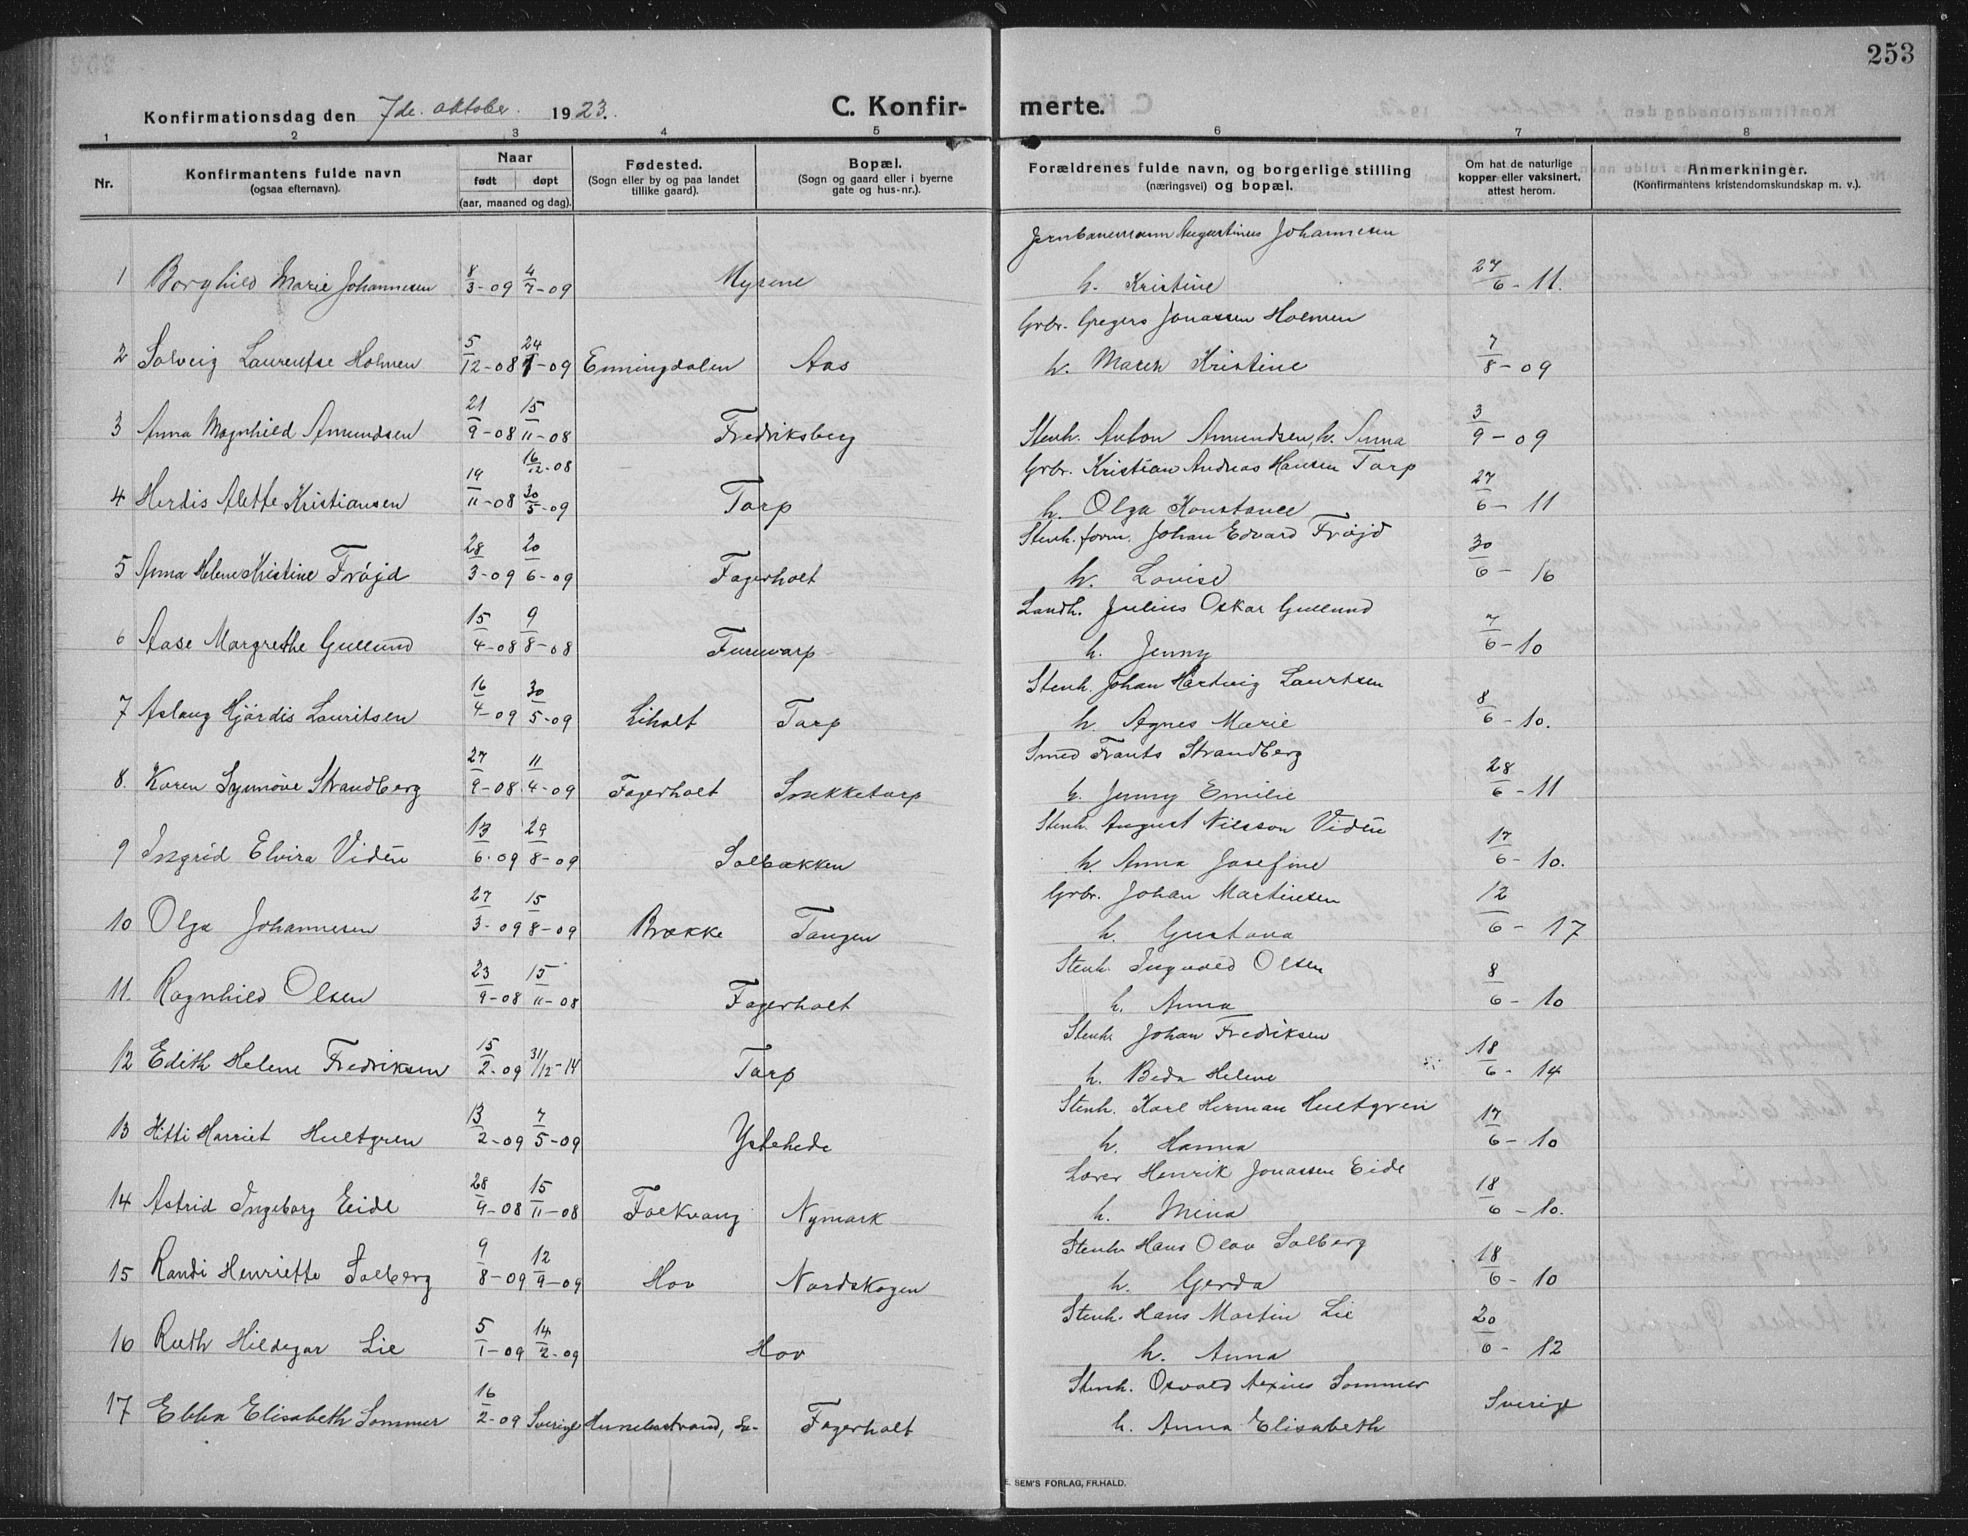 253
Konfirmationsdag den 7de. oktober. 1923. C. Konfir- merte.
1 2 3 4 5 6 7 8
Nr. Konfirmantens fulde navn (ogsaa efternavn). Naar født døpt (aar, maaned og dag). Fødested. (Sogn eller by og paa landet tillike gaard). Bopæl. (Sogn og gaard eller i byerne gate og hus-nr.). Forældrenes fulde navn, og borgerlige stilling (næringsvei) og bopæl. Om hat de naturlige kopper eller vaksinert, attest herom. Anmerkninger. (Konfirmantens kristendomskundskap m. v.).
Jernbanemann Augustinus Johannesen
1 Borghild Marie Johannesen 8/3-09 4/7-09 Mysene h. Kristine 27/6-11.
Grbr. Gregers Jonassen Holmen
2 Solveig Laurentse Holmen 5/12-08 24/1-09 Enningdalen Aas h. Maren Kristine 7/8-09
3 Anna Magnhild Amundsen 21/9-08 15/11-08 Fredriksberg Stenh. Anton Amundsen, h. Sinna 3/9-09
16/12-08 Grbr. Kristian Andreas Hansen Tarp
4 Herdis Alette Kristiansen 19/11-08 30/5-09 Torp h. Olga Konstance 27/6-11
Stenh. form. Johan Edvard Fröjd
5 Anna Helene Kristine Fröjd 28/3-09 20/6-09 Fagerholt h. Lovise 30/6-16
Landh. Julius Oskar Gullund
6 Aase Margrethe Gullund 15/4-08 9/8-08 Furuvarp h. Jenny 7/6-10
Stenh. Johan Hartvig Lauritsen
7 Aslaug Hjördis Lauritsen 16/4-09 30/5-09 Liholt Torp h. Agnes Marie 8/6-10.
Smed Frants Strandberg
8. Karen Synnöve Strandberg 27/9-08 11/4-09 Fagerholt Snekketorp h. Jenny Emilie 28/6-11
Stenh. August Nilsson Vidén
9 Ingrid Elvira Vidén 13/6-09 29/8-09 Solbakken h. Anna Josefine 17/6-10.
Grbr. Johan Martinsen
10 Olga Johannesen 27/3-09 15/8-09 Brække Tangen h. Gustava 12/6-17
Stenh. Ingvald Olsen
11. Ragnhild Olsen 23/9-08 15/11-08 Fagerholt h. Anna 8/6-10
Stenh. Johan Fredriksen
12 Edith Helene Fredriksen 15/2-09 31/12-14 Torp h. Beda Helene 18/6-14
Stenh. Karl Herman Hultgren
13 Kitti Harriet Hultgren 13/2-09 7/5-09 Ystehede h. Hanna 17/6-10
Lærer Henrik Jonassen Eide
14 Astrid Ingeborg Eide 28/9-08 15/11-08 Folkvang Nymark h. Mina 18/6-10.
Stenh. Hans Olav Solberg
15 Randi Henriette Solberg 9/8-09 12/9-09 Hov Nordskogen h. Gerda 18/6-10
Stenh. Hans Martin Lie
16 Ruth Hildegar Lie 5/1-09 14/2-09 Hov h. Anna 20/6-12
Stenh. Osvald Sommer
17 Ebba Elisabeth Sommer 16/2-09 Sverige Hunebostrand, Sv- Fagerholt h. Anna Elisabeth Sverige
E. SEM'S FORLAG, FR.HALD.